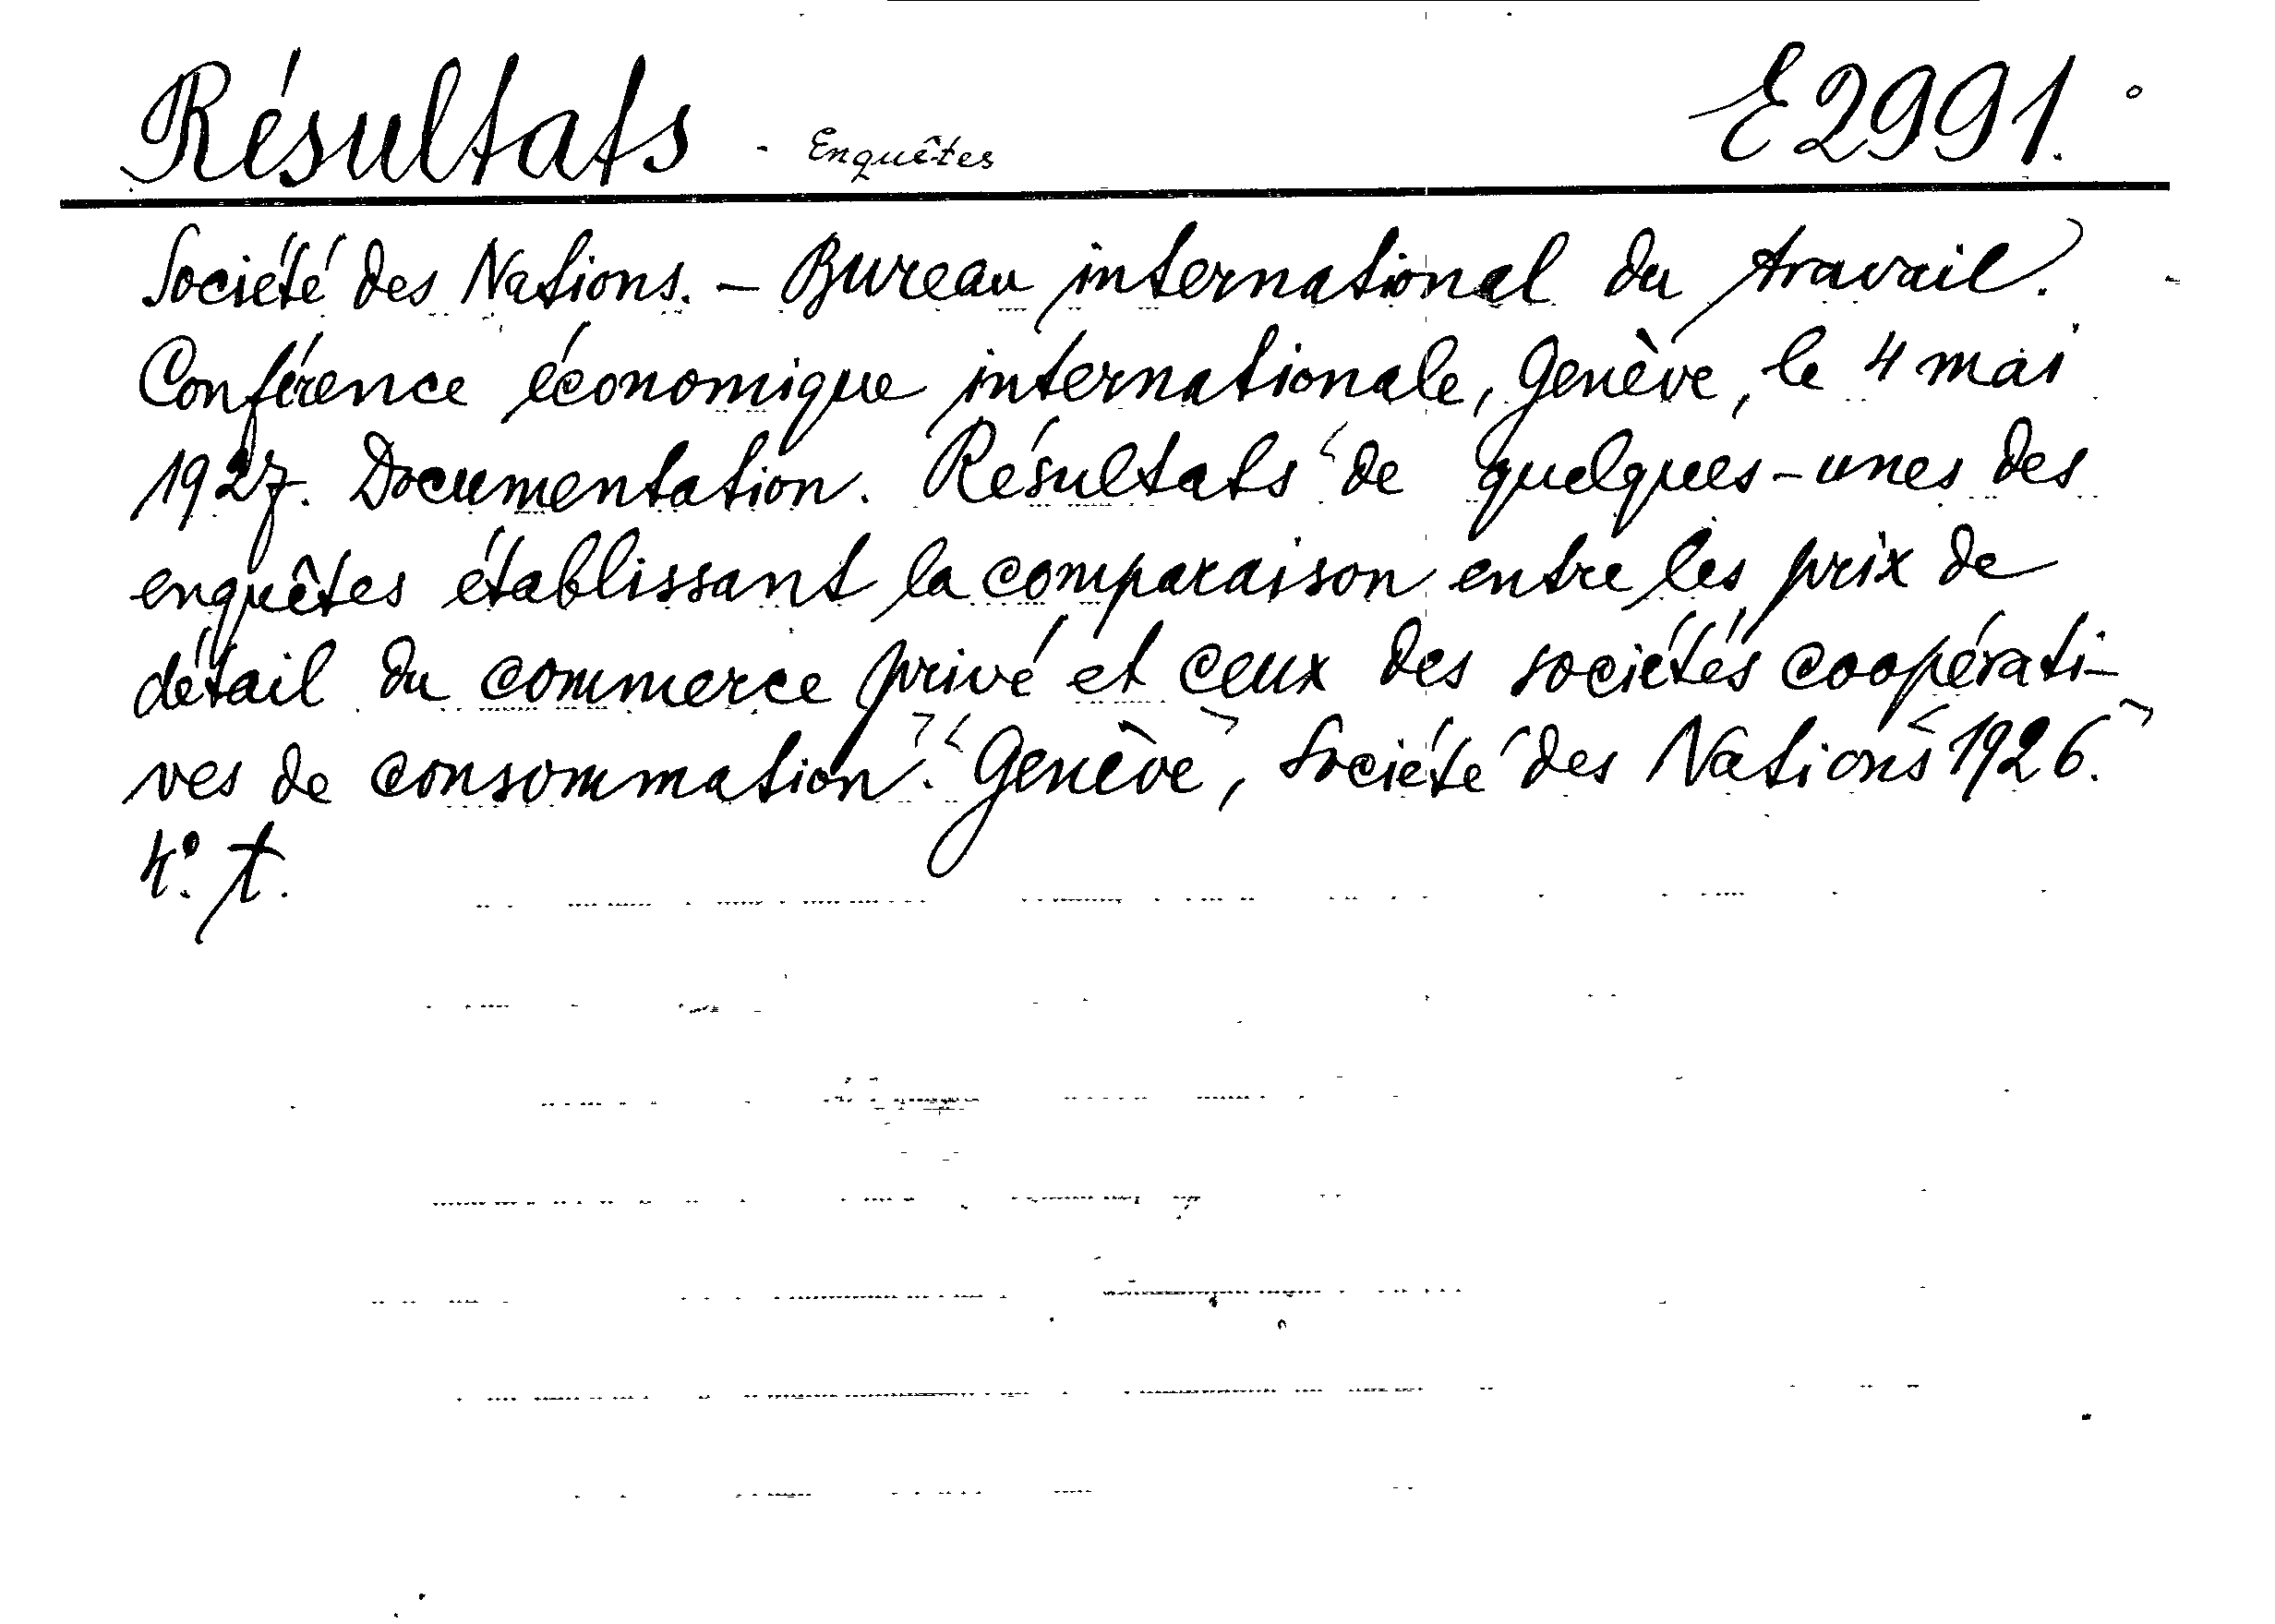 Résultats - Enquêtes E 2991.
Société des Nations. - Bureau international du travail.
Conférence économique internationale, Genève, le 4 mai
1927. Documentation. Résultats de quelques-unes des
enquêtes établissant la comparaison entre les prix de
détail du commerce privé et ceux des sociétés coopérati-
ves de consommation. Genève, Société des Nations 1926.
4º. t.